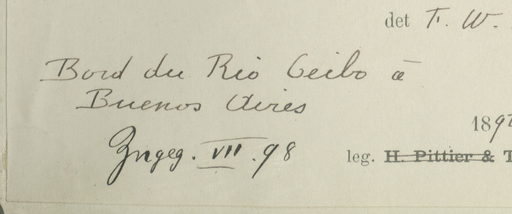 det F. W.
Bord du Rio Ceibo à
Buenos Aires
189
Ingeg. VII. 98
leg. H. Pittier & T